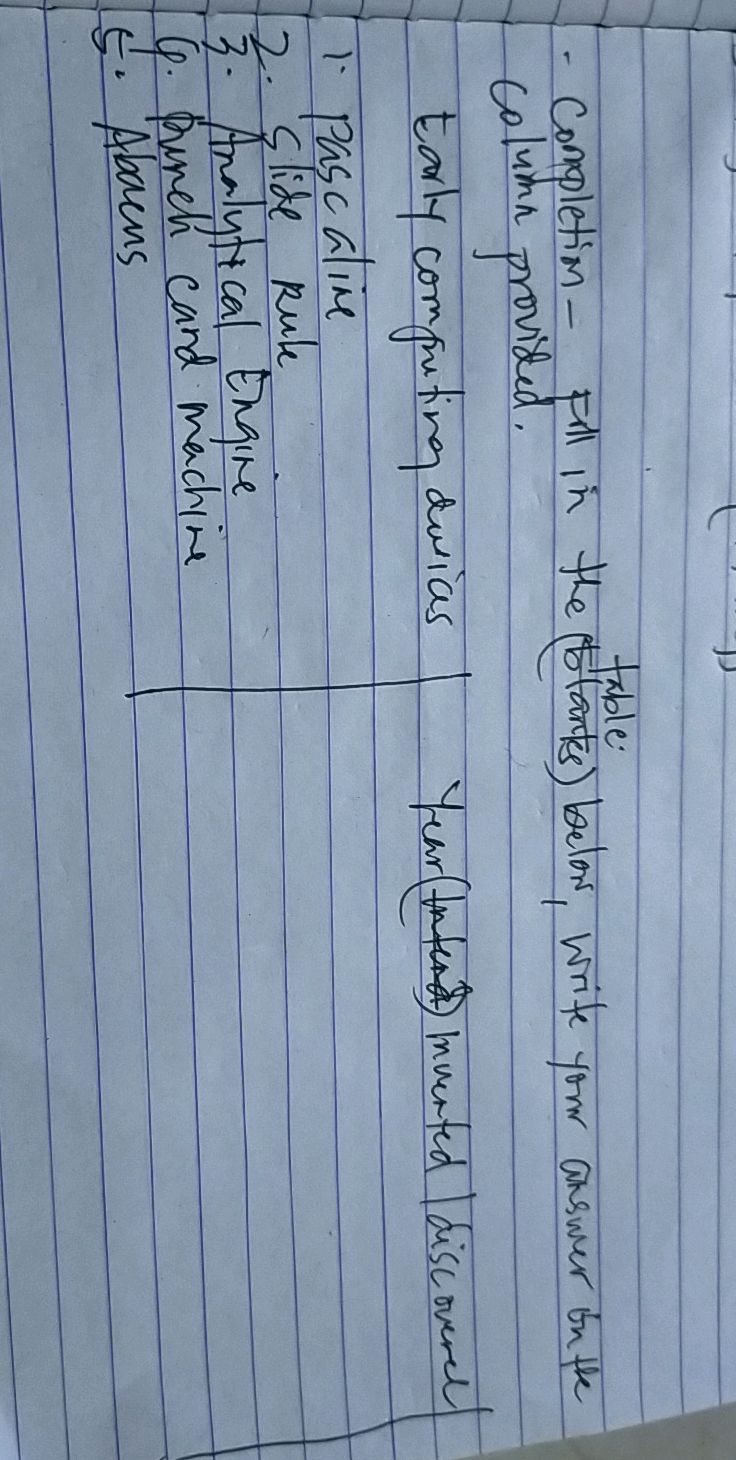 table.
- Completion - Fill in the (blanks) below, write your answer on the
column provided.
Early computing devices Year (Intend) invented / discovered
1. Pascaline
2. Slide Rule
3. Analytical Engine
4. Punch card machine
5. Abacus